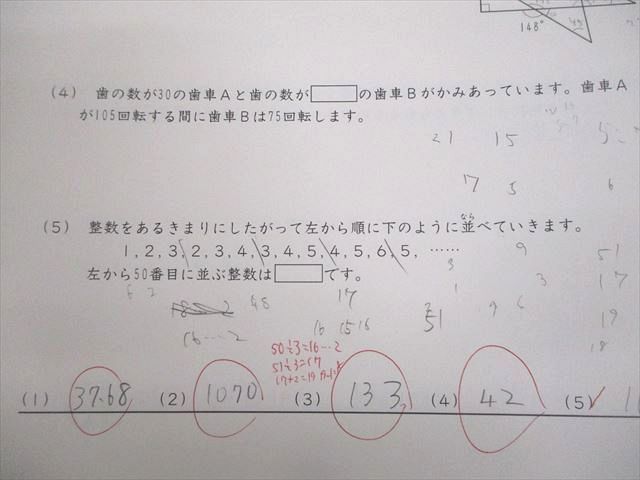 148°
(4) 歯の数が30の歯車Aと歯の数が の歯車Bがかみあっています。歯車A
が105回転する間に歯車Bは75回転します。
21 15
17 5 6
(5) 整数をあるきまりにしたがって左から順に下のように並べていきます。
なら
1, 2, 3, 2, 3, 4, 3, 4, 5, 4, 5, 6, 5, ……
左から50番目に並ぶ整数は です。
3 9 51
1 3 17
6 2 48 17 9 6
16…2 16 15 16 51 19
18
50÷3=16…2
51÷3=17
17+2=19
(1) 37.68 (2) 1070 (3) 133 (4) 42 (5)